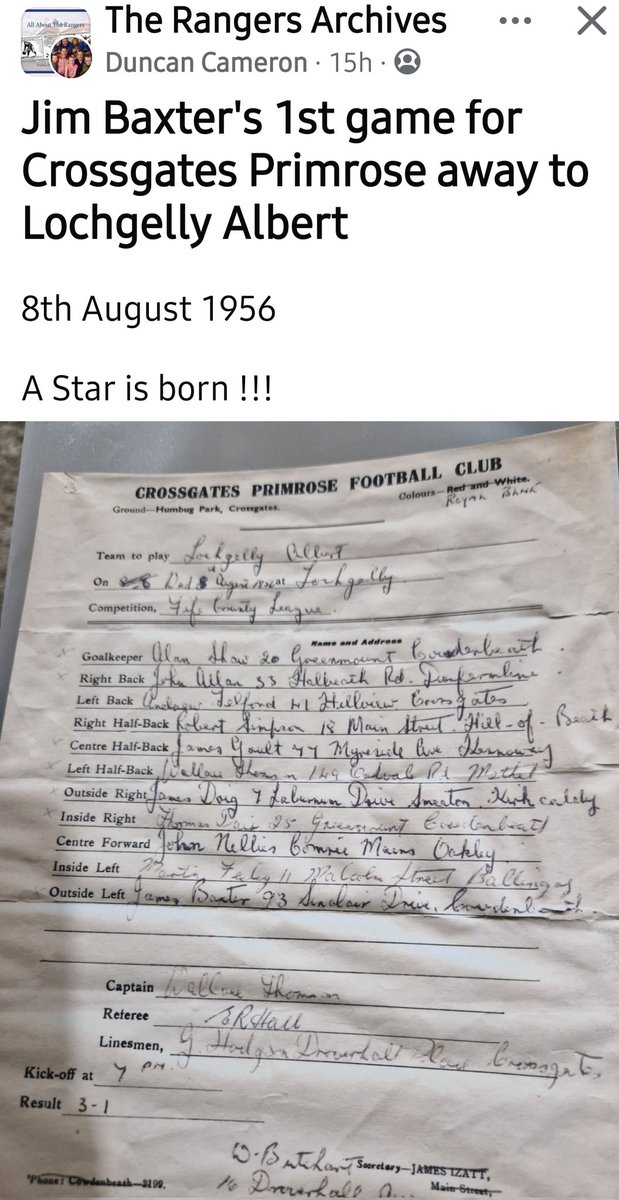 All About The Rangers
The Rangers Archives
Duncan Cameron · 15h ·
Jim Baxter's 1st game for
Crossgates Primrose away to
Lochgelly Albert
8th August 1956
A Star is born !!!
CROSSGATES PRIMROSE FOOTBALL CLUB
Ground—Humbug Park, Crossgates.
Colours—Red and White.
Royal Blank
Team to play Lochgelly Albert
On Wed 8 August 1956 at Lochgelly
Competition, Fife County League.
Name and Address
Goalkeeper Alan Shaw 20 Greenmount Cowdenbeath.
Right Back John Allan 33 Halbeath Rd. Dunfermline
Left Back Telford 41 Hillview Crossgates
Right Half-Back Robert Simpson 18 Main Street. Hill-of-Beath
Centre Half-Back James Gault 77 Myreside Ave Kennoway
Left Half-Back Wallace Thomson 149 Rd Methil
Outside Right James Doig 7 Laburnum Drive Smeaton. Kirkcaldy
Inside Right Thomas 25 Greenmount Cowdenbeath
Centre Forward John Nellies Comrie Mains Oakley
Inside Left Martin 11 Malcolm Street Ballingry
Outside Left James Baxter 93 Sinclair Drive. Cowdenbeath.
Captain Wallace Thomson
Referee Hall
Linesmen, G. Hodgson Place Crossgates.
Kick-off at 7 PM.
Result 3-1
W. Butchart Secretary—JAMES IZATT,
'Phone: Cowdenbeath—3199. 16 Main Street,